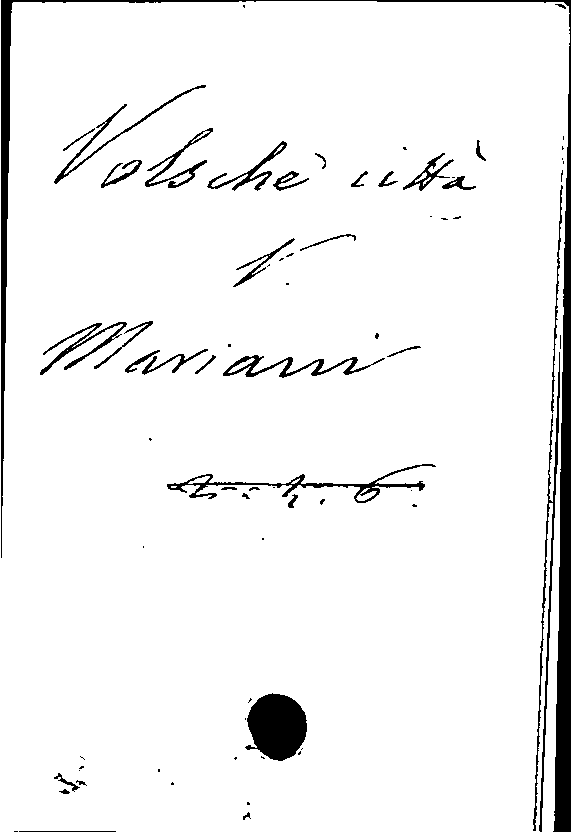 Volschè città
V.
Mariani